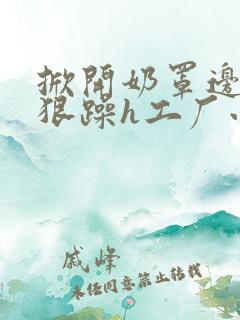 掀開奶罩邊
狠躁h工厂、
戚峰
未经同意禁止转载